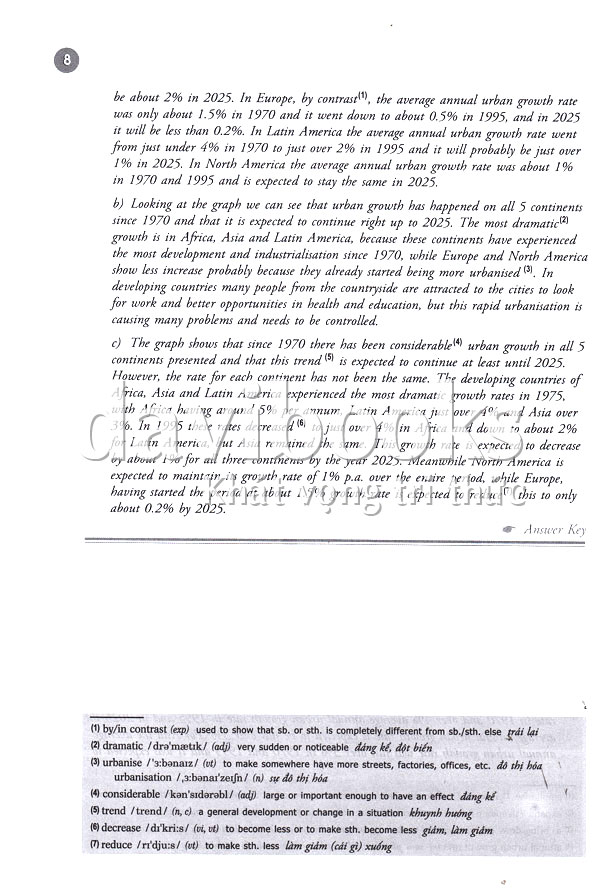 8
be about 2% in 2025. In Europe, by contrast(1), the average annual urban growth rate
was only about 1.5% in 1970 and it went down to about 0.5% in 1995, and in 2025
it will be less than 0.2%. In Latin America the average annual urban growth rate went
from just under 4% in 1970 to just over 2% in 1995 and it will probably be just over
1% in 2025. In North America the average annual urban growth rate was about 1%
in 1970 and 1995 and is expected to stay the same in 2025.
b) Looking at the graph we can see that urban growth has happened on all 5 continents
since 1970 and that it is expected to continue right up to 2025. The most dramatic(2)
growth is in Africa, Asia and Latin America, because these continents have experienced
the most development and industrialisation since 1970, while Europe and North America
show less increase probably because they already started being more urbanised (3). In
developing countries many people from the countryside are attracted to the cities to look
for work and better opportunities in health and education, but this rapid urbanisation is
causing many problems and needs to be controlled.
c) The graph shows that since 1970 there has been considerable(4) urban growth in all 5
continents presented and that this trend (5) is expected to continue at least until 2025.
However, the rate for each continent has not been the same. The developing countries of
Africa, Asia and Latin America experienced the most dramatic growth rates in 1975,
with Africa having around 5% per annum, Latin America just over 4% and Asia over
3%. In 1995 these rates decreased (6) to just over 4% in Africa and down to about 2%
for Latin America, but Asia remained the same. This growth rate is expected to decrease
by about 1% for all three continents by the year 2025. Meanwhile North America is
expected to maintain its growth rate of 1% p.a. over the entire period, while Europe,
having started the period at about 1.5% growth rate is expected to reduce(7) this to only
about 0.2% by 2025.
davibooks
khát vọng tri thức
Answer Key
(1) by/in contrast (exp) used to show that sb. or sth. is completely different from sb./sth. else trái lại
(2) dramatic /drə'mætɪk/ (adj) very sudden or noticeable đáng kể, đột biến
(3) urbanise /'ɜ:bənaɪz/ (vt) to make somewhere have more streets, factories, offices, etc. đô thị hóa
urbanisation /,ɜ:bənaɪ'zeɪʃn/ (n) sự đô thị hóa
(4) considerable /kən'sɪdərəbl/ (adj) large or important enough to have an effect đáng kể
(5) trend /trend/ (n, c) a general development or change in a situation khuynh hướng
(6) decrease /dɪ'kri:s/ (vi, vt) to become less or to make sth. become less giảm, làm giảm
(7) reduce /rɪ'dju:s/ (vt) to make sth. less làm giảm (cái gì) xuống